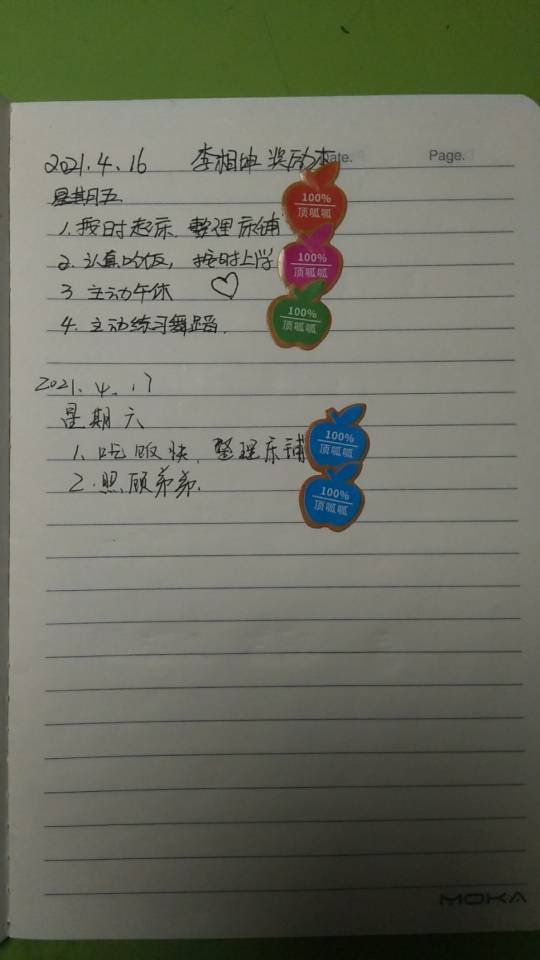 2021.4.16 李相坤 奖励本 ate. Page.
星期五
1.按时起床、整理床铺
2.认真吃饭，按时上学
3 主动午休
4.主动练习舞蹈.
100%
顶呱呱
100%
顶呱呱
100%
顶呱呱
2021.4.17
星期六
1.吃饭快、整理床铺
2.照顾弟弟.
100%
顶呱呱
100%
顶呱呱
MOKA